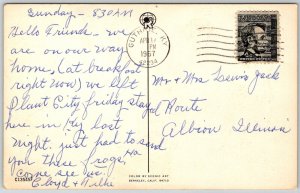 Sunday - 830 AM
Hello Friends - we
are on our way
home, (at breakfast
right now) we left
Plant City friday stay
here in last
night. just had to send
you these frogs, Ha
Come see us.
Floyd +
1967
PM
Mr + Mrs Lewis Jack
Route
Albion Illinois
COLOR BY SCENIC ART
BERKELEY, CALIF. 94710